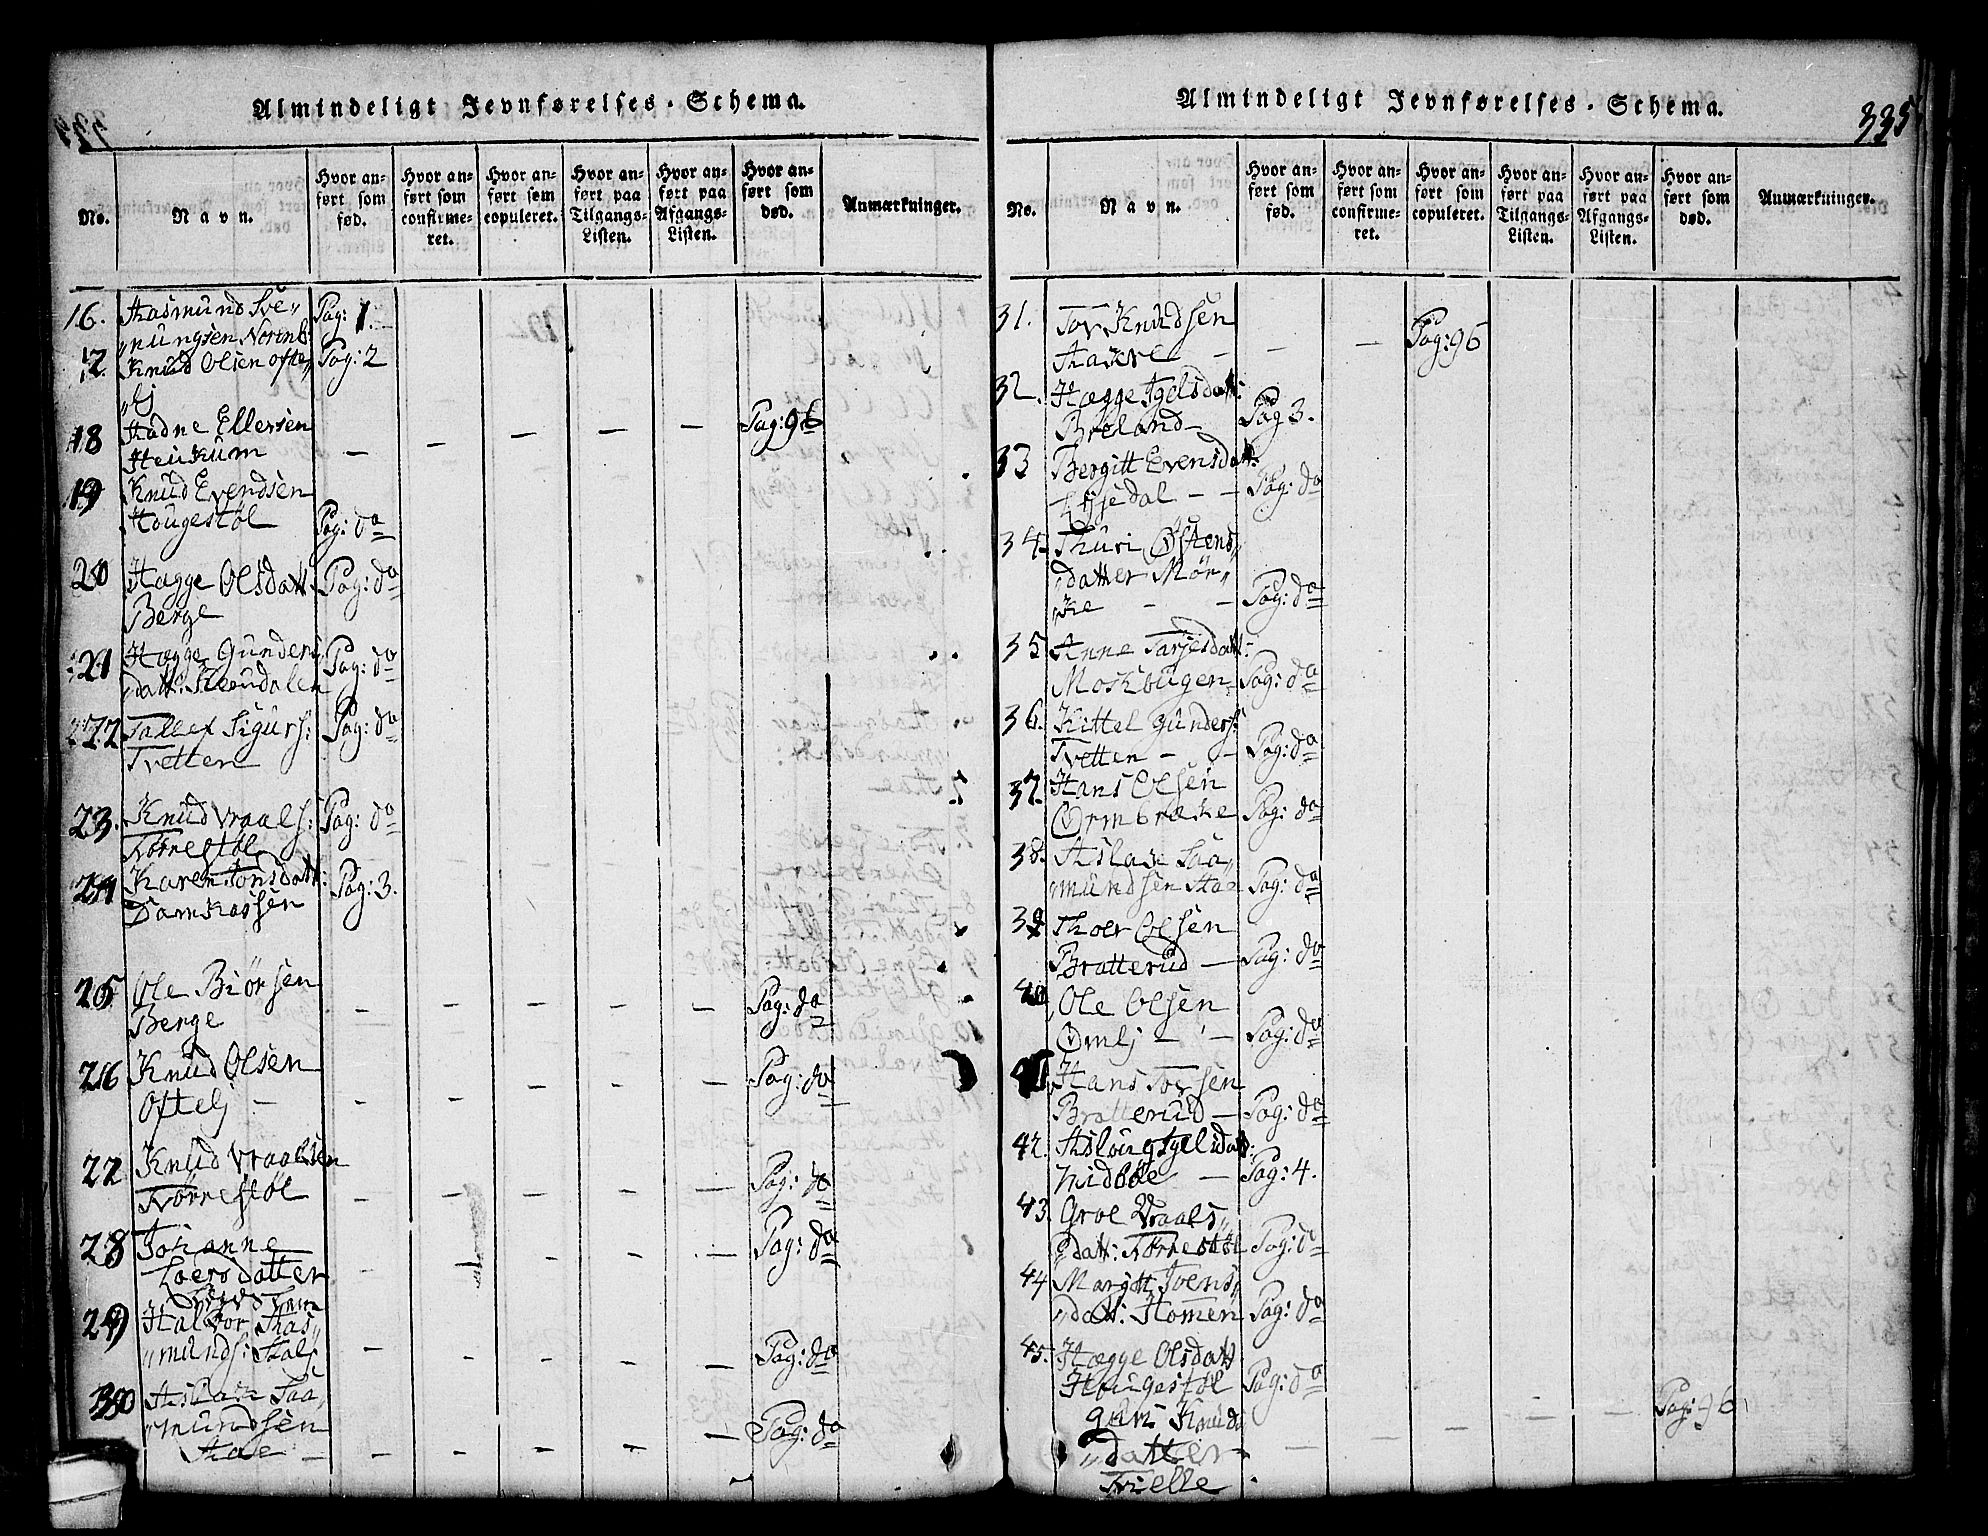 Almindeligt Jevnførelses-Schema.
No.
Navn.
Hvor anført som fød.
Hvor anført som confirmeret.
Hvor anført som copuleret.
Hvor anført paa Tilgangs-Listen.
Hvor anført paa Afgangs-Listen.
Hvor anført som død.
Anmærkninger.
16. Aasmund Sve„ Pag: 1.
„nungsen
17. Knud Olsen Ofte„ Pag: 2
„lj
18 Aadne Ellersen
Heukum — — — — — Pag: 96
19 Knud Evendsen
Hougestøl Pag: do
20 Hægge Olsdatt. Pag: do
Berge
21 Hægge Gunders„ Pag: do
„datt:
22 Tallef Sigurs: Pag: do
Tvetten
23. Knud Vraals: Pag: do
Nørrestøl
24 Karen Jonsdatt: Pag: 3.
Damkassen
25 Ole Biørsen
Berge — — — — — Pag: do
26 Knud Olsen
Oftelj — — — — — Pag: do
27 Knud Vraalsen
Nørrestøl — — — — — Pag: do
28 Johanne
Loersdatter — — — — — Pag: do
29 Halvor Aas„
„munds: — — — — — Pag: do
30 Aslak Saa„
„mundsen
Aase — — — — — Pag: do
Almindeligt Jevnførelses-Schema.
335
No.
Navn.
Hvor anført som fød.
Hvor anført som confirmeret.
Hvor anført som copuleret.
Hvor anført paa Tilgangs-Listen.
Hvor anført paa Afgangs-Listen.
Hvor anført som død.
Anmærkninger.
31. Tov Knudsen
— — — Pag: 96
32. Hægge Igelsdatt:
Brøland — Pag 3.
33 Bergitt Evensdatt.
— — Pag: do
34. Thuri Østens„
„datter Mør„
„ke — — Pag: do
35 Anne Tarjesdatt:
Moskbugen Pag: do
36. Kittel Gunders:
Tvetten — — Pag: do
37. Hans Olsen
Ørmbrække Pag: do
38. Aslak Saa„
„mundsen Pag: do
39 Thoer Olsen
Bratterud — Pag: do
40 Ole Olsen
— — Pag: do
41 Hans Torsen
Bratterud — Pag: do
42. Aslaug Igelsdatt:
Midbøe — Pag: 4.
43. Groe Vraals„
„datt: Nørrestøl Pag: do
44 Margitt Joens„
„datt: Homen Pag: do
45. Hægge Olsdatt
Hougestøl Pag: do
Guri Knuds
„datter — — — — — Pag: 96